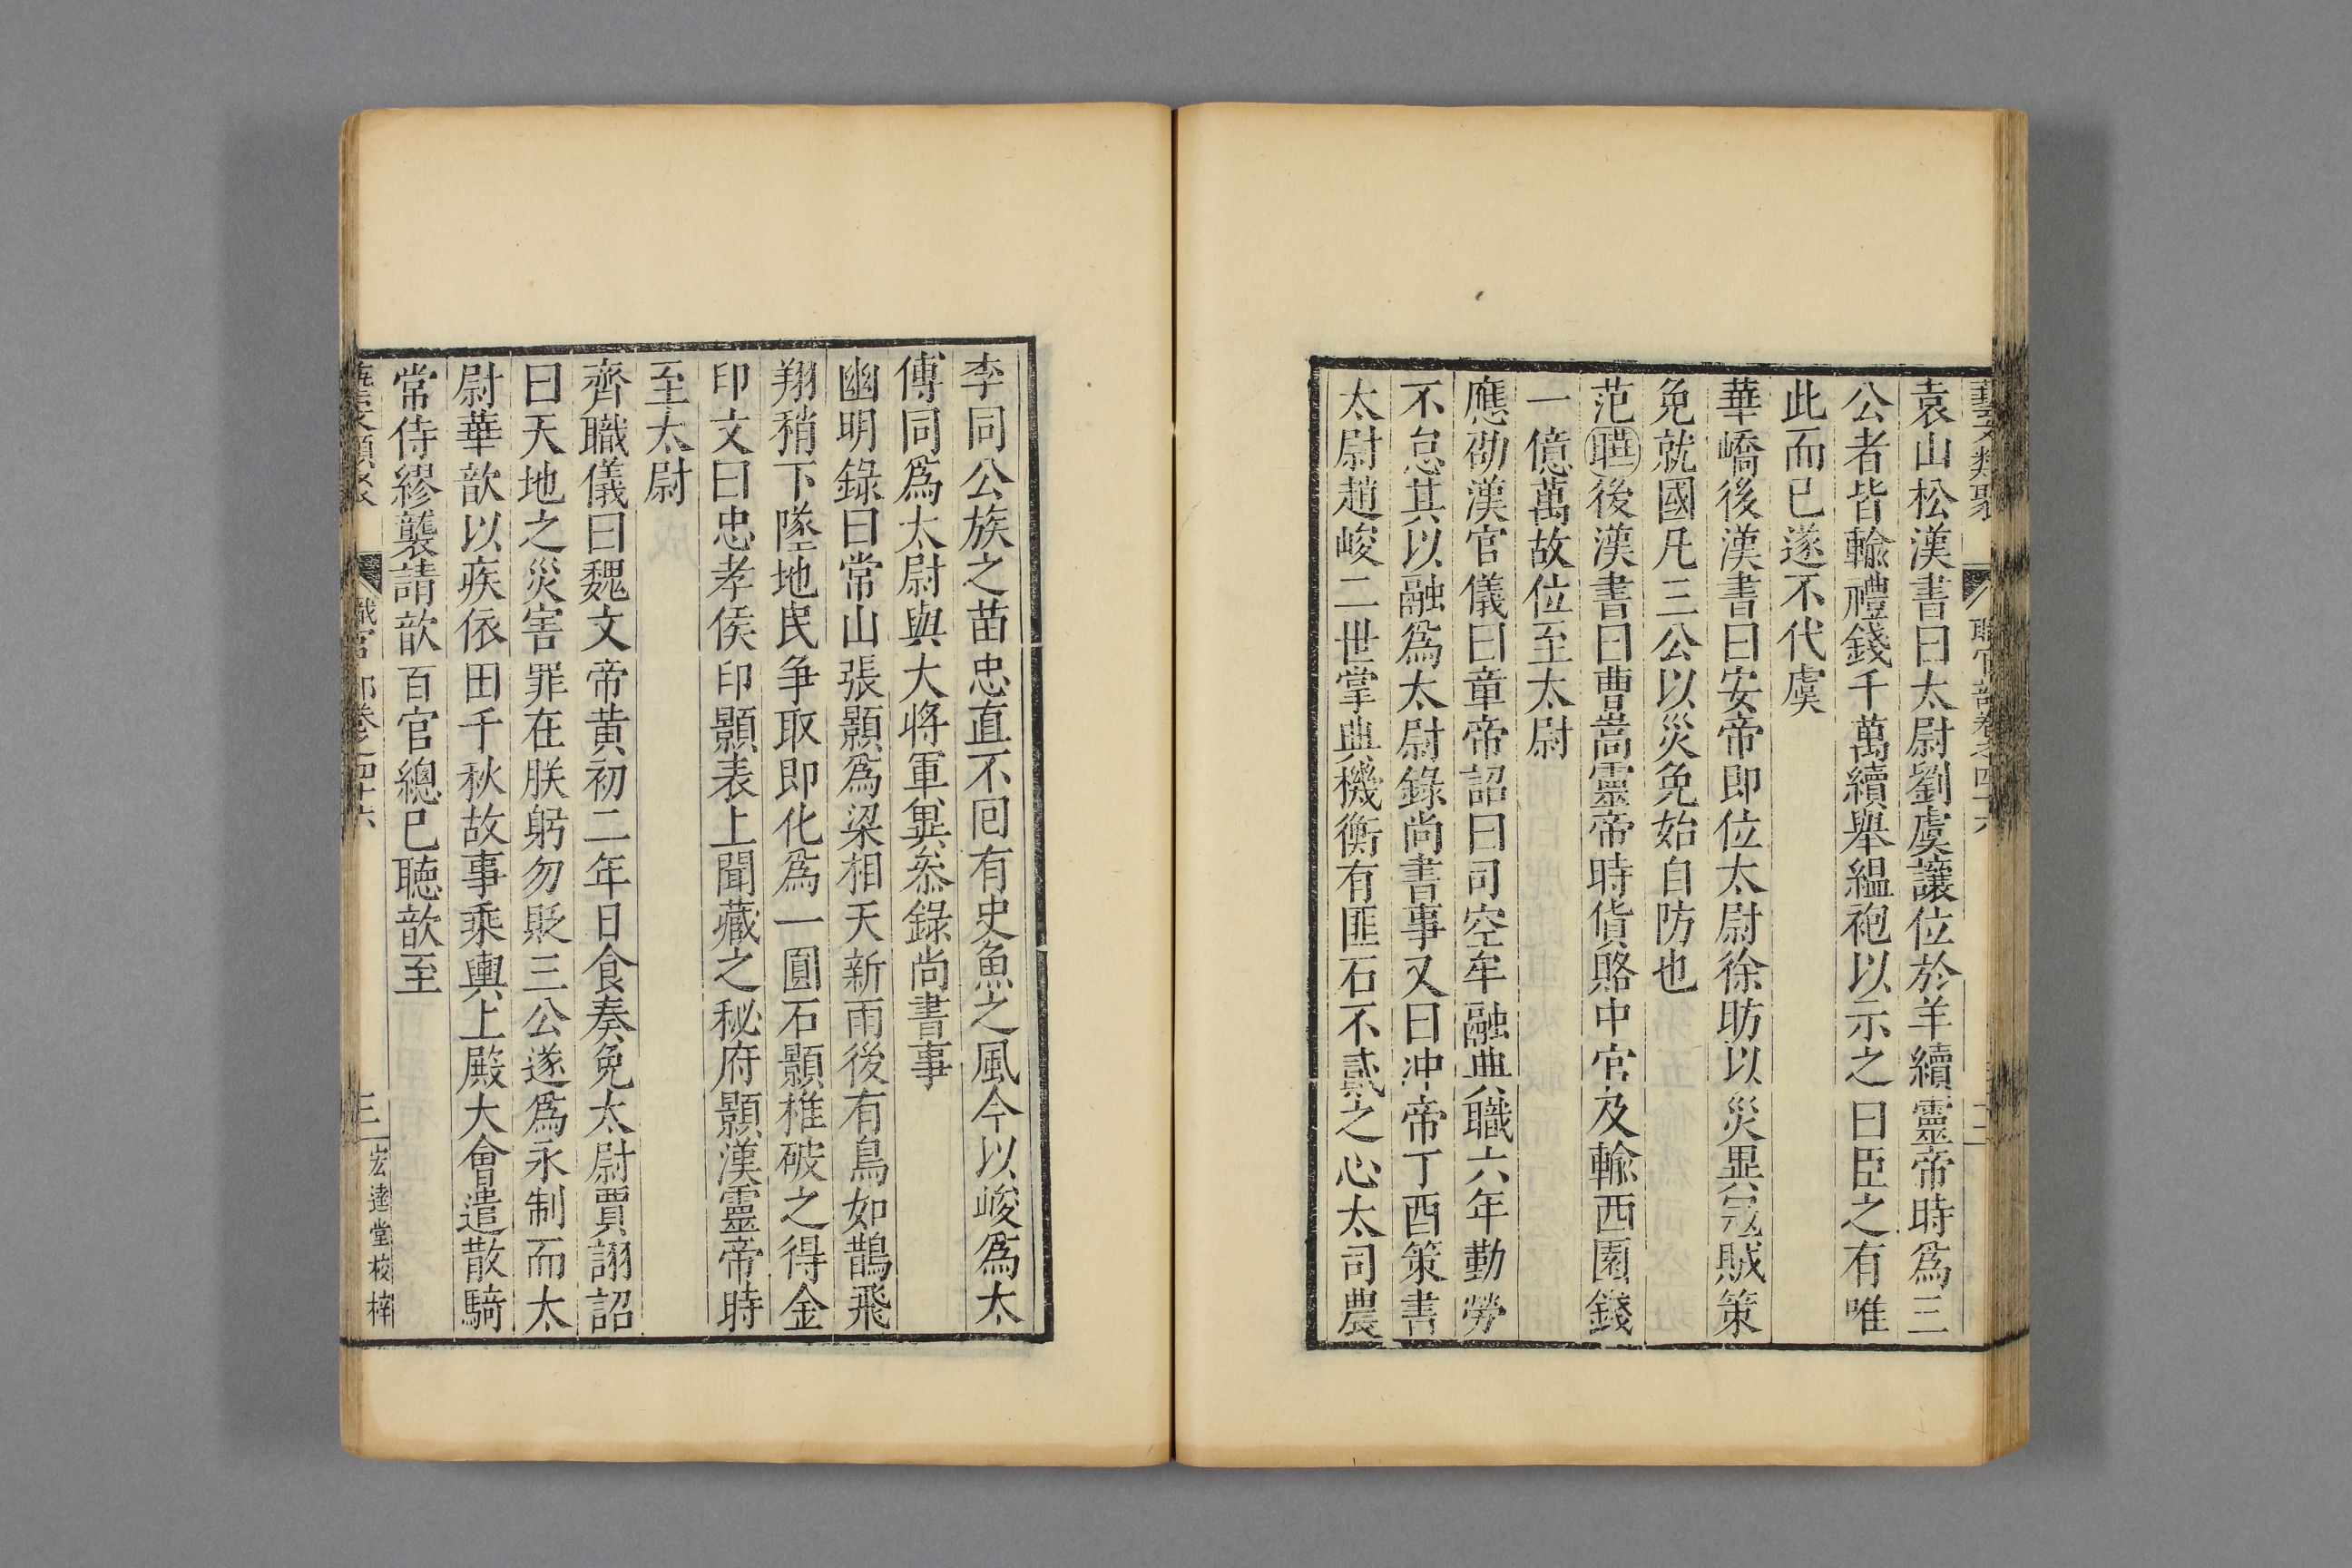 藝文類聚 職官部卷之四十六 二
袁山松漢書曰太尉劉虞讓位於羊續靈帝時爲三
公者皆輸禮錢千萬續舉緼袍以示之曰臣之有唯
此而已遂不代虞
華嶠後漢書曰安帝即位太尉徐昉以災異寇賊策
免就國凡三公以災免始自防也
范曄後漢書曰曹嵩靈帝時貨賂中官及輸西園錢
一億萬故位至太尉
應劭漢官儀曰章帝詔曰司空牟融典職六年勤勞
不怠其以融爲太尉錄尚書事又曰沖帝丁酉策書
太尉趙峻二世掌典機衡有匪石不貳之心太司農
李同公族之苗忠直不囘有史魚之風今以峻爲太
傅同爲太尉與大將軍兾叅錄尚書事
幽明錄曰常山張顥爲梁相天新雨後有鳥如鵲飛
翔稍下墜地民爭取即化爲一圓石顥椎破之得金
印文曰忠孝侯印顥表上聞藏之秘府顥漢靈帝時
至太尉
齊職儀曰魏文帝黃初二年日食奏免太尉賈詡詔
曰天地之災害罪在朕躬勿貶三公遂爲永制而太
尉華歆以疾依田千秋故事乘輿上殿大會遣散騎
常侍繆襲請歆百官總巳聽歆至
藝文類聚 職官部卷之四十六 三 宏達堂校梓